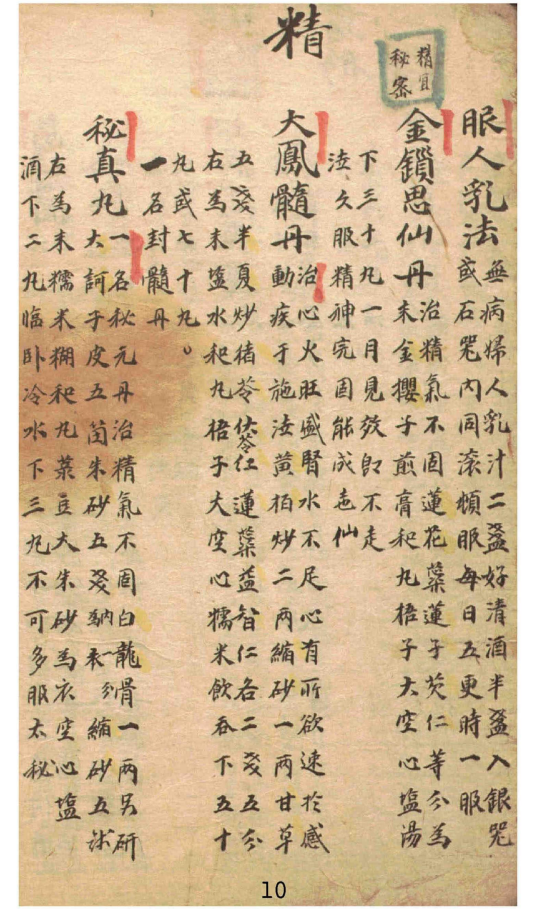 精
精宜
秘密
服人乳法
無病婦人乳汁二盞好清酒半盞入銀器
或石器內同滾頓服每日五更時一服
金鎖思仙丹
治精氣不固蓮花蘂蓮子芡仁等分為
末金櫻子煎膏和丸梧子大空心塩湯
下三十丸一月見效即不走
泄久服精神完固能成地仙
大鳳髓丹
治心火旺盛腎水不足心有所欲速於感
動疾于施泄黃柏炒二兩縮砂一兩甘草
五戔半夏炒猪苓茯苓仁蓮蘂益智仁各二戔五分
右為末塩水和丸梧子大空心糯米飲吞下五十
丸或七十丸。
一名封髓丹
秘真丸
一名秘元丹治精氣不固白龍骨一兩另研
大訶子皮五箇朱砂五戔衣一分縮砂五
右為末糯米糊和丸菉豆大朱砂為衣空心塩
酒下二丸临卧冷水下三丸不可多服太秘
10